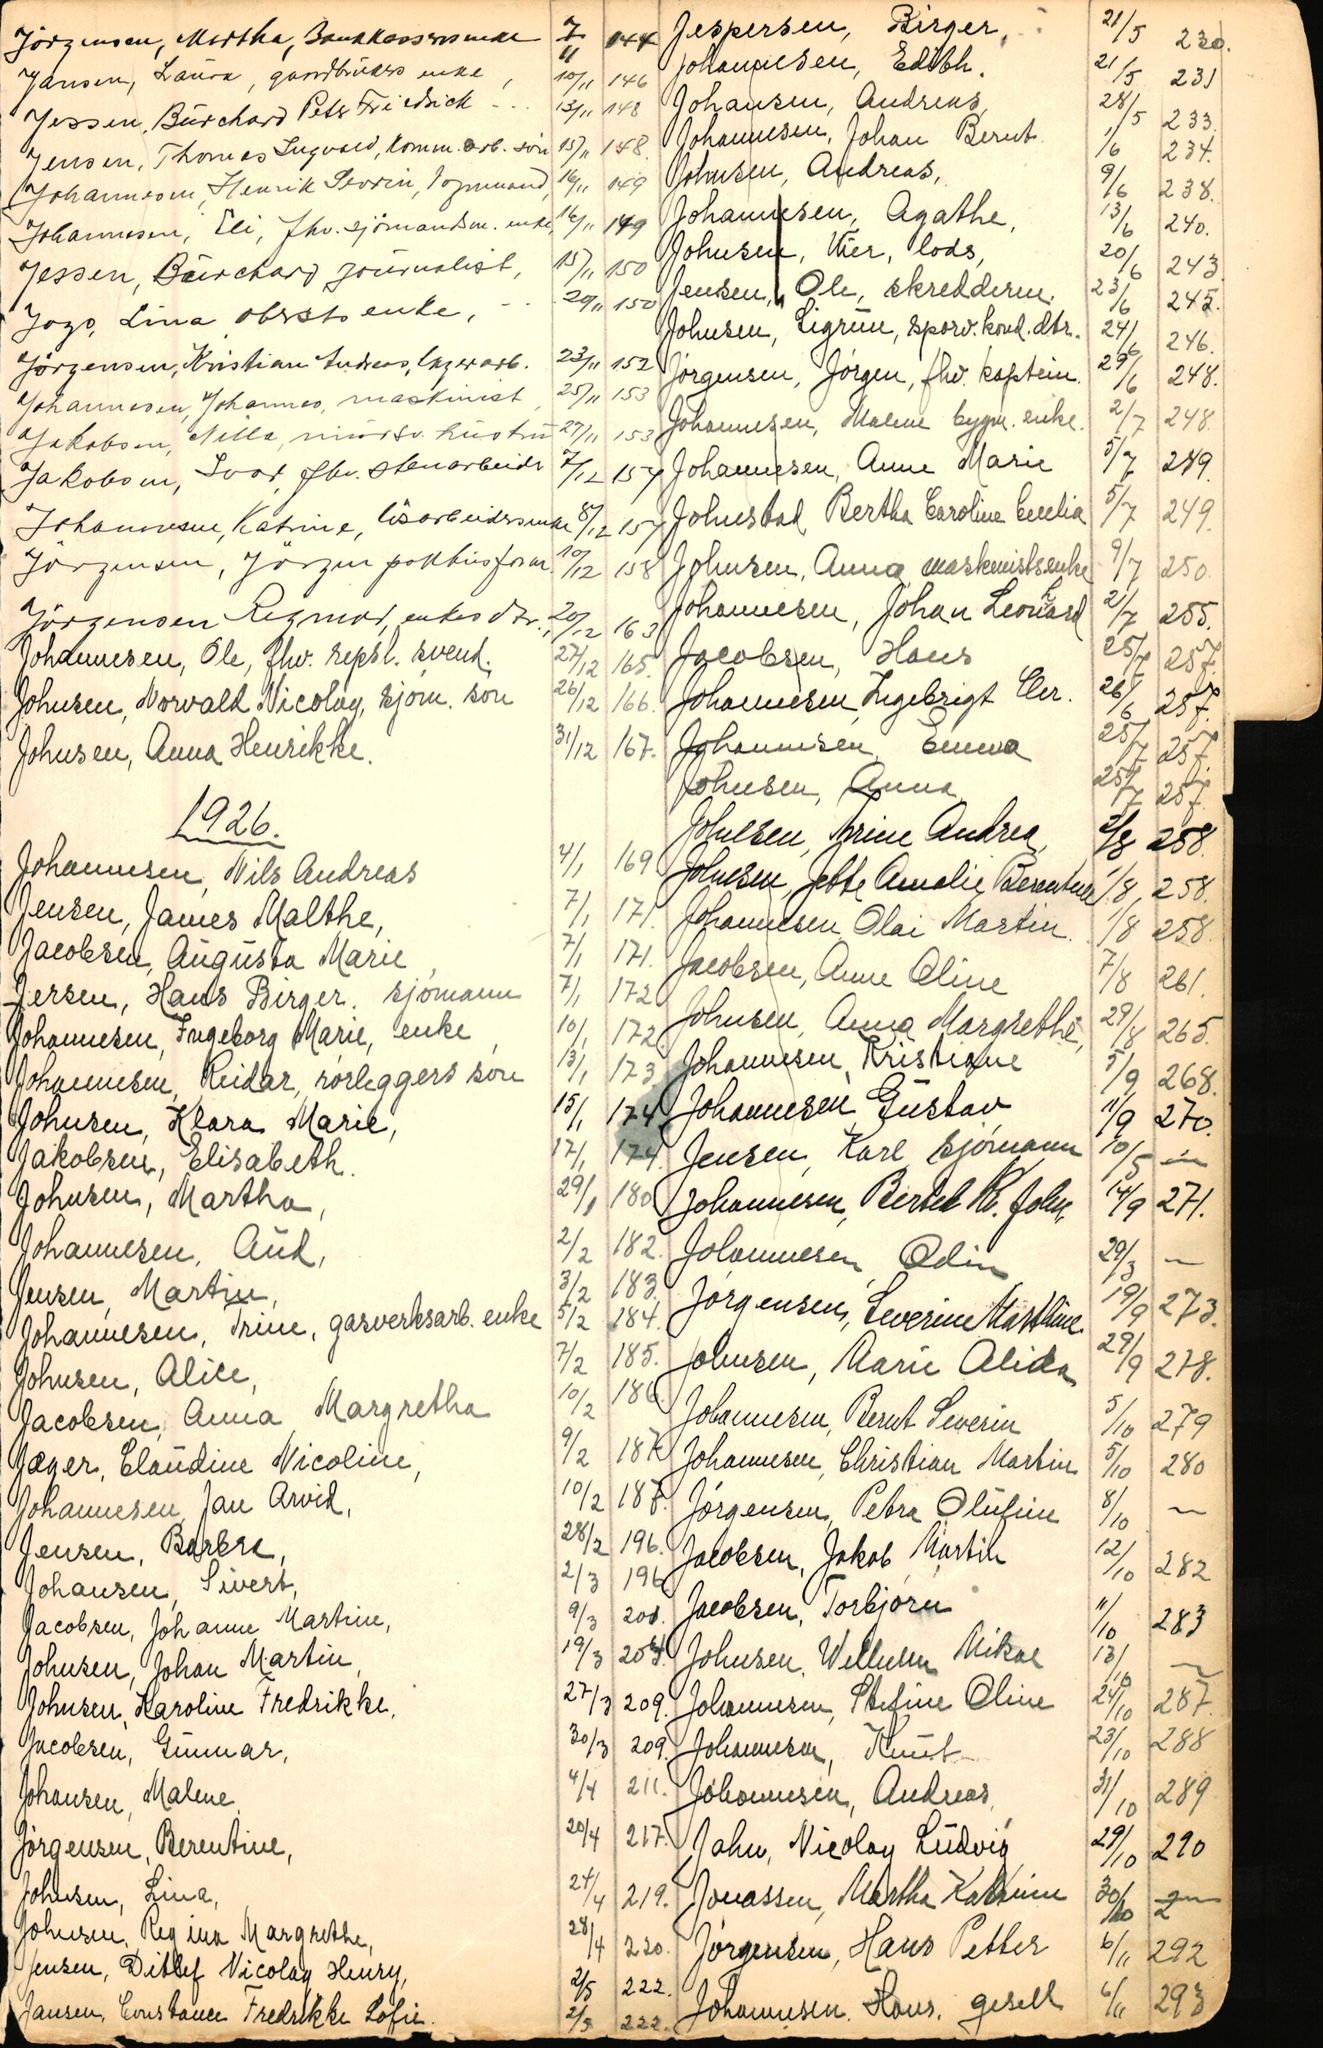 Jörgensen, Martha, Bankkasserersenke 7/11 144
Jansen, Laura, gaardbrukers enke, 10/11 146
Jessen, Bürchard Peter Friedrich 13/11 148
Jensen, Thomas Ingvald, komm. arb. sön 15/11 148.
Johannesen, Henrik Severin, 16/11 149
Johannesen, Eli, fhv. sjömandsm. enke, 16/11 149
Jessen, Bürchard journalist, 15/11 150
Lina oberst enke, 20/11 150
Jörgensen, Kristian Andreas, lagerarb. 23/11 152
Johannesen, Johannes, maskinist, 25/11 153
Jakobsen, Nilla, hustru 27/11 153
Jakobsen, Ivar, fhv. stenarbeider 7/12 157
Johannesen, Katrine, lösarbeidersenke 8/12 157
Jörgensen, Jörgen 10/12 158
Jörgensen Ragmar, enkes dtr., 20/12 163
Johannesen, Ole, fhv. repsl. svend. 27/12 165.
Johnsen, Norvald Nicolay, sjöm. sön 26/12 166.
Johnsen, Anna Henrikke. 31/12 167.
1926.
Johannesen, Nils Andreas 4/1 169
Jensen, James Malthe, 7/1 171.
Jacobsen, Augusta Marie 7/1 171.
Jersen, Hans Birger. sjömann 7/1 172
Johannesen, Ingeborg Marie, enke, 10/1 172
Johannesen, Reidar, rörleggers sön 13/1 173
Johnsen, Klara Marie, 15/1 174
Jakobsen, Elisabeth. 17/1 174.
Johnsen, Martha, 29/1 180
Johannesen, Aud, 2/2 182.
Jensen, Martin, 3/2 183.
Johannesen, Trine, gasverksarb. enke 5/2 184.
Johnsen, Alice, 7/2 185.
Jacobsen, Anna Margretha 10/2 186
Jæger, Claudine Nicoline, 9/2 187
Johannesen, Jan Arvid, 10/2 187.
Jensen, Barbra, 28/2 196.
Johansen, Sivert, 2/3 196
Jacobsen, Johanne Martine, 9/3 200.
Johnsen, Johan Martin, 19/3 204.
Johnsen, Karoline Fredrikke, 27/3 209.
Jacobsen, Gunnar, 30/3 209.
Johansen, Malene 4/4 211.
Jörgensen, Berentine, 20/4 217.
Johnsen, Lina, 24/4 219.
Johnsen, Regina Margrethe, 28/4 220.
Jensen, Ditlef Nicolay Henry, 2/5 222.
Jansen, Constance Fredrikke Sofie. 2/5 222.
Jespersen, Birger, 21/5 230.
Johannesen, Edith. 21/5 231
Johansen, Andreas, 28/5 233.
Johannesen, Johan Bernt 1/6 234.
Johnsen, Andreas, 9/6 238.
Johannesen, Agathe, 13/6 240.
Johnsen, lods, 20/6 243.
Jensen, Ole, skredderm. 23/6 245.
Johnsen, Sigrun, sporv. kond. dtr. 24/6 246.
Jörgensen, Jörgen, fhv. kaptein. 29/6 248.
Johannesen, Malene bygm. enke. 2/7 248.
Johannesen, Anne Marie 5/7 249.
Johnstad Bertha Caroline Cecelia 5/7 249.
Johnsen, Anna, maskinistsenke 9/7 250.
Johannesen, Johan Leonhard 21/7 255.
Jacobsen, Hans 25/7 257.
Johannesen, Ingebrigt Chr. 26/6 257.
Johannesen, Emma 25/7 257.
Johnsen, Anna 25/7 257.
Johnsen, Trine Andrea, 2/8 258.
Johnsen, Jette Amalie Berentine 1/8, 258.
Johannesen Olai Martin. 1/8 258.
Jacobsen, Anne Oline 7/8 261.
Johnsen, Anna Margrethe, 29/8 265.
Johannesen, Kristiane 5/9 268.
Johannesen, Gustav 11/9 270.
Jensen, Karl sjömann 10/5 —
Johannesen, Bertel Kr. John, 14/9 271.
Johannesen, Odin 29/3 —
Jörgensen, Severine Mathline 19/9 273.
Johnsen, Marie Alida 29/9 278.
Johannesen, Bernt Severin 5/10 279
Johannesen, Christian Martin 5/10 280
Jörgensen, Petra Olufine 8/10 —
Jacobsen, Jakob Martin 12/10 282
Jacobsen, Torbjörn 11/10 283
Johnsen, Mikal 13/10 —
Johannesen, Stefine Oline 24/10 287.
Johannesen, Knut 23/10 288
Johannesen, Andreas, 31/10 289
Jahn, Nicolay Ludvig 29/10 290
Jonassen, Martha Katrine 30/10
Jörgensen, Hans Petter 6/11 292
Johannesen. Hans, gesell 6/11 293